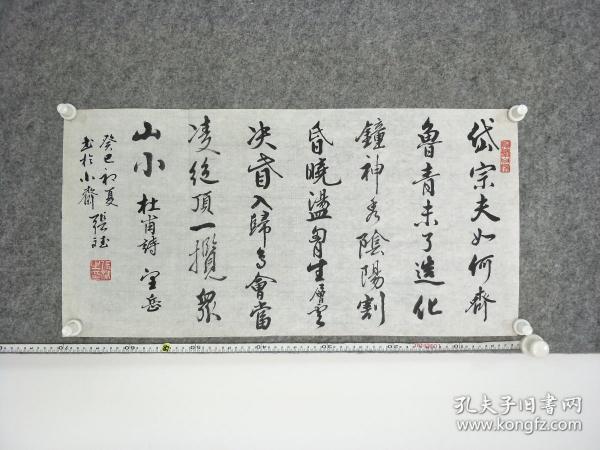 岱宗夫如何齊
魯青未了造化
鐘神秀陰陽割
昏曉盪胷生層雲
决眥入歸鳥會當
凌絕頂一攬眾
山小 杜甫詩 望岳
癸巳初夏
書於小齋 張
孔夫子旧书网
www.kongfz.com